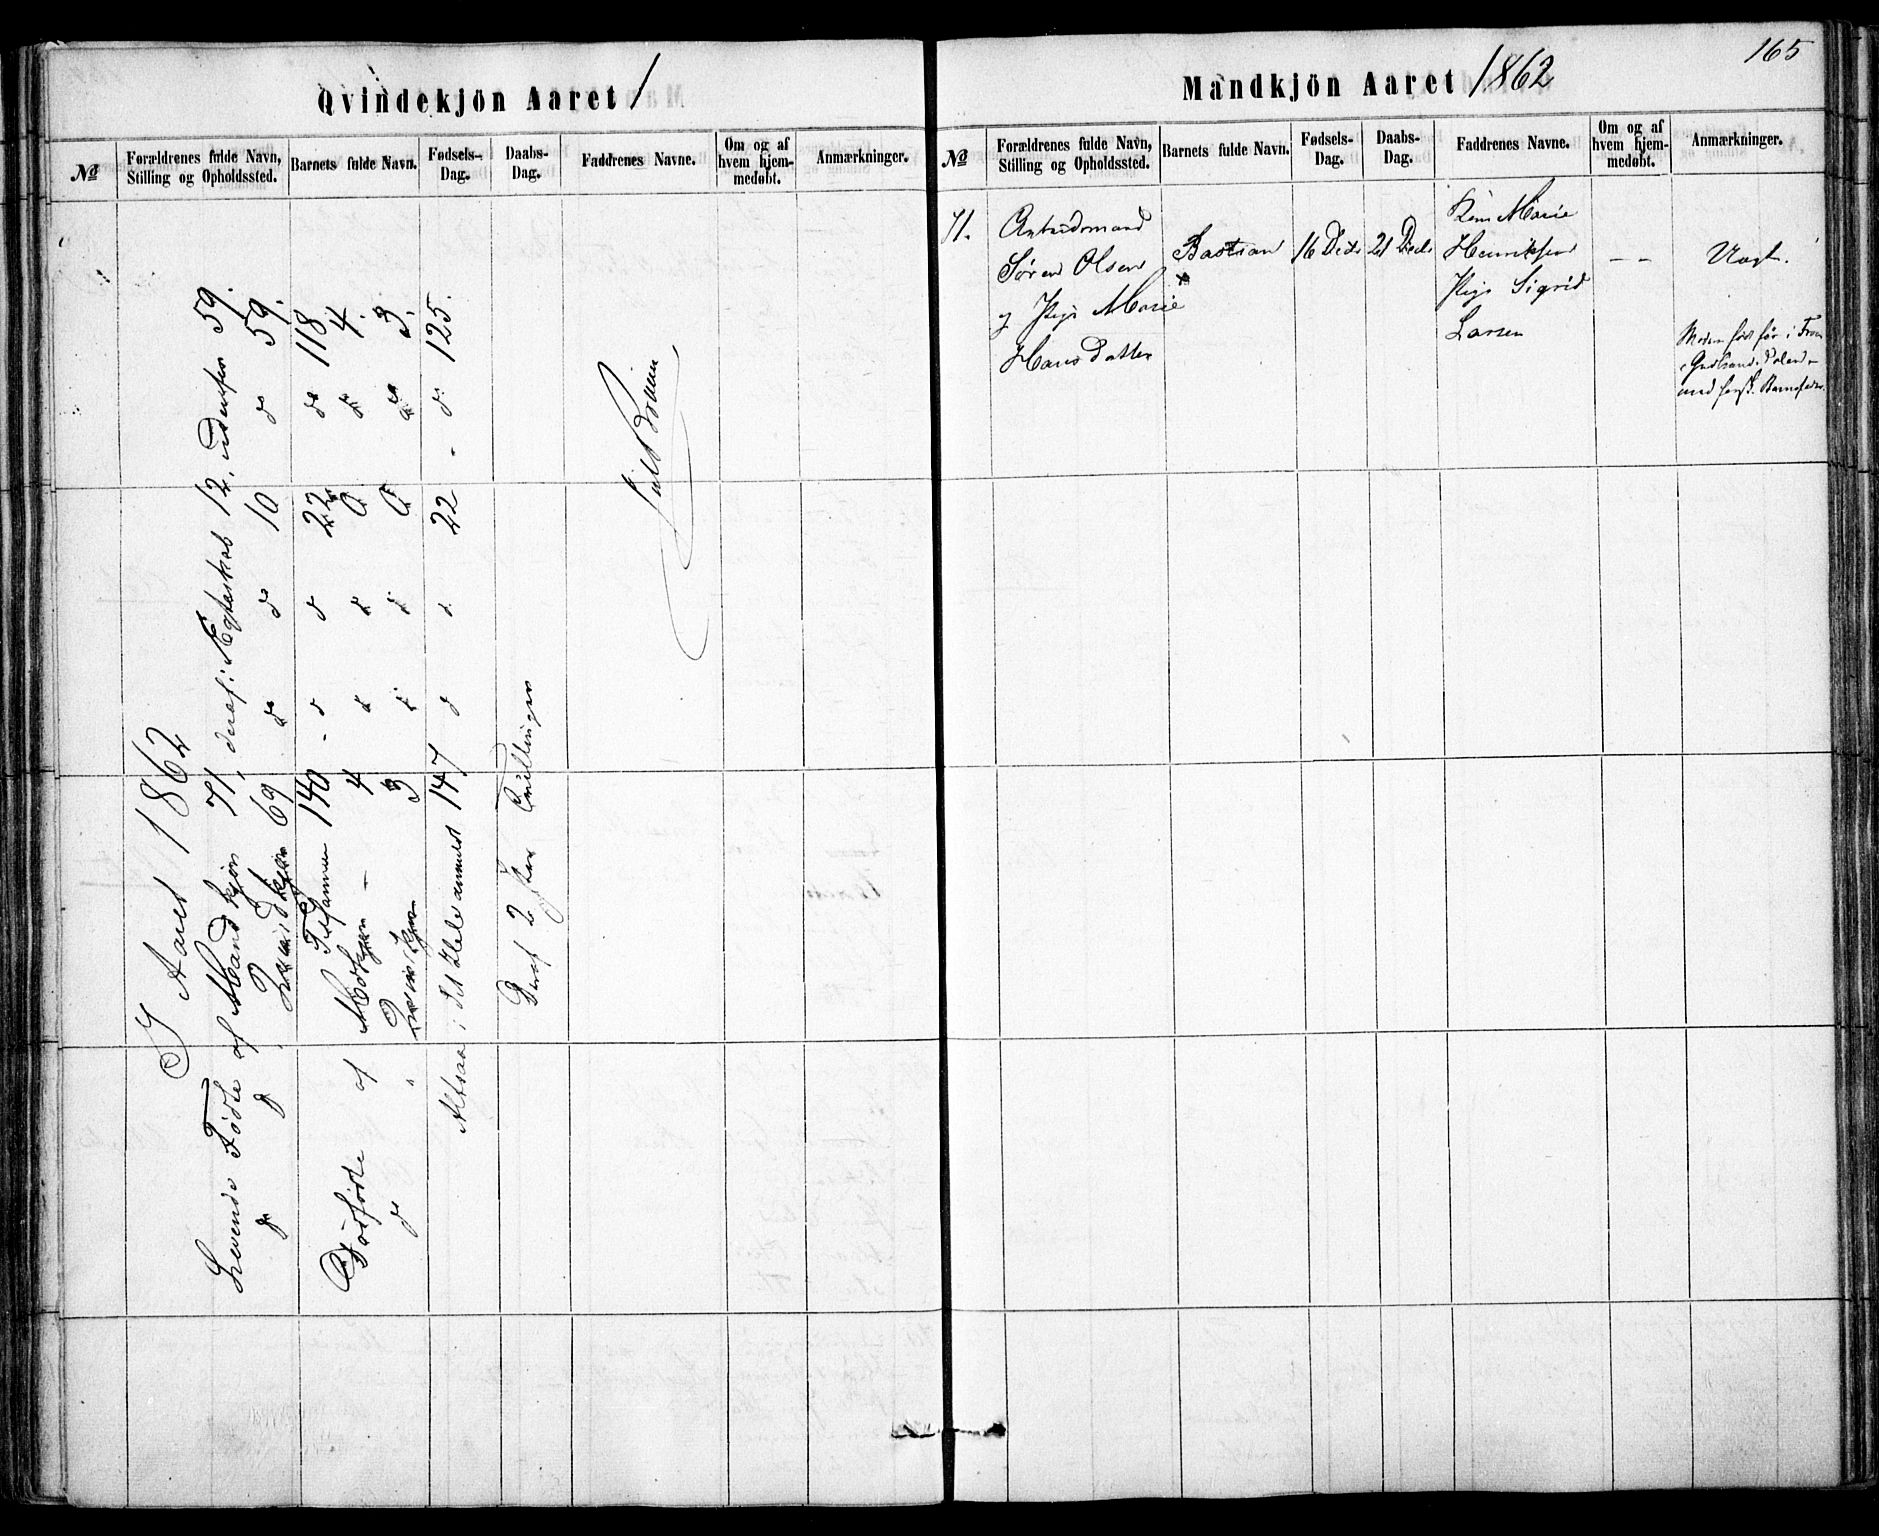 Qvindekjön Aaret 1
№
Forældrenes fulde Navn, Stilling og Opholdssted.
Barnets fulde Navn.
Fødsels-Dag.
Daabs-Dag.
Faddrenes Navne.
Om og af hvem hjem-medøbt.
Anmærkninger.
I Aaret 1862
Levende Fødte af Mandkjøn 71, deraf i Ægteskab 12, udenfor 59.
d d Qvindkjøn 69 d d 10 d 59.
Tilsammen 140 - d d 22 d 118
Dødfødte af Mdkjøn - 4 d d 0 d 4.
d " Qvindkjøn 3 d d 0 d 3.
Altsaa i det Hele anmeldt 147 d d 22 - d 125.
Deraf 2 Tvillinger
165
Mandkjön Aaret 1862
№
Forældrenes fulde Navn, Stilling og Opholdssted.
Barnets fulde Navn.
Fødsels-Dag.
Daabs-Dag.
Faddrenes Navne.
Om og af hvem hjem-medøbt.
Anmærkninger.
71.
Arbeidsmand
Søren Olsen
og Pige Marie
Hansdatter
Bastian
16 Decb
21 Decb
Marie
Henriksen
Pige Sigrid
Larsen
— —
Uægt.
Moderen før i
med Barnefader.